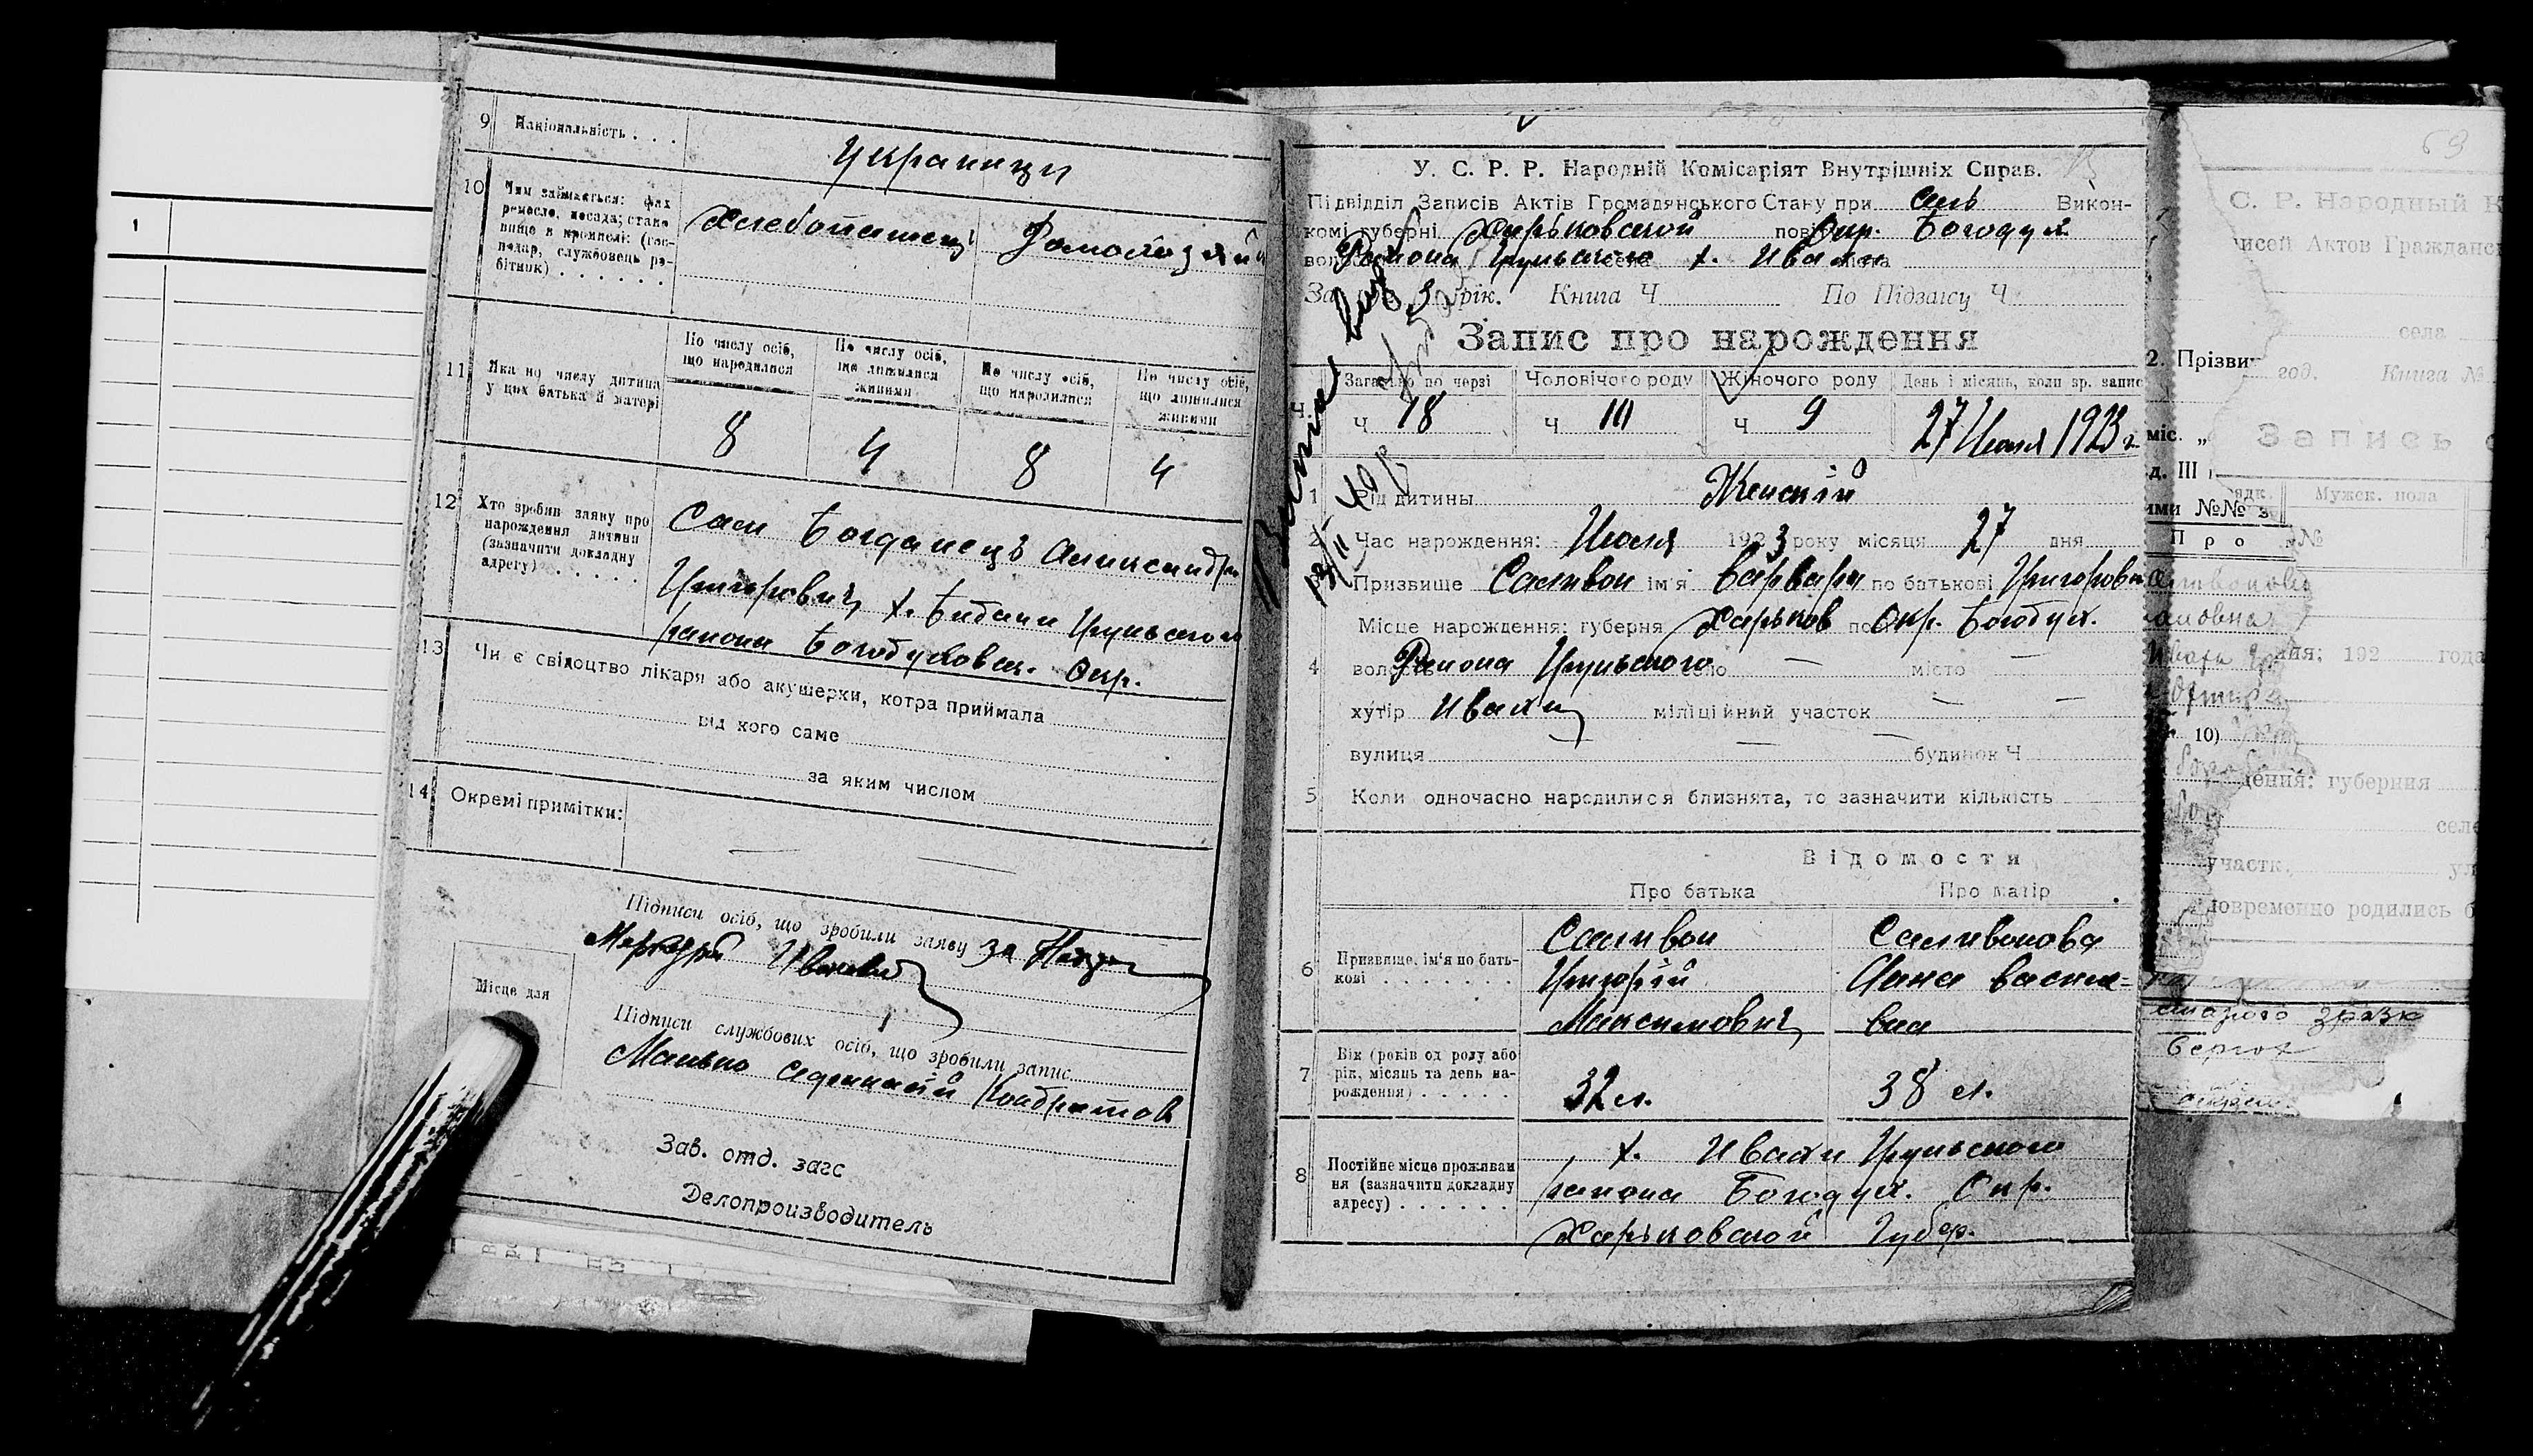 1
9 Національність . . .
Украинцы
10 Чим займається: фах
ремесло, посада; стано
вище в промислі: (гос-
подар, службовець ро-
бітник) . . . . . .
Хлебопашец
Домохозяйк
11 Яка по числу дитина
у цих батька й матері
По числу осіб,
що народилися
По числу осіб,
що лишилися
живими
По числу осіб,
що народилися
По числу осіб,
що лишилися
живими
8 4 8 4
12 Хто зробив заяву про
народження дитини
(зазначити докладну
адресу) . . . . .
Сам Богданецъ Александр
Григорович х.
района Богодуховск. Окр.
13 Чи є свідоцтво лікаря або акушерки, котра приймала
від кого саме
за яким числом
14 Окремі примітки:
Підписи осіб, що зробили заяву за
Місце для
Підписи службових осіб, що зробили запис
Манько
Зав. отд. загс
Делопроизводитель
У. С. Р. Р. Народній Комісаріят Внутрішніх Справ.
Підвідділ Записів Актів Громадянського Стану при Сель Викон-
комі губерні Харьковской Окр. Богодух.
Района х. Ивахи
За 3 рік. Книга Ч По Підзапису Ч
Запис про нарождення
Загально по черзі Чоловічого роду Жіночого роду День і місяць, коли зр. запис
Ч 18 Ч 10 Ч 9 27 Июля 1923 г.
1 Рід дитины Женскій
2 Час нарождення: Июля 1923 року місяця 27 дня
Призвище Саливон ім'я Варвара по батькові Григоровн
Місце нарождення: губерня Харьков Окр. Богодух.
4 Района Грунского місто
хутір Ивахи міліційний участок
вулиця будинок Ч
5 Коли одночасно народилися близнята, то зазначити кількість
Відомости
Про батька Про матір
6 Призвище, ім'я по бать-
кові . . . . . . .
Саливон
Григорій
Максимович
Саливонова
Анна Василе-
вна
7 Вік (років од роду або
рік, місяць та день на-
рождення) . . . . .
32 л. 38 л.
8 Постійне місце проживан
ня (зазначити докладну
адресу) . . . . . .
х. Ивахи Грунского
района Богодух. Окр.
Харьковской Губер.
69
С. Р. Народный К
исей Актов Гражданс
села
2. Прізви
год. Книга №
міс. „
Запись
д. III
Мужск. пола
ими №№
Про №
ня; 192 года
10)
дения: губерния
селе
участк. ул
новременно родились б